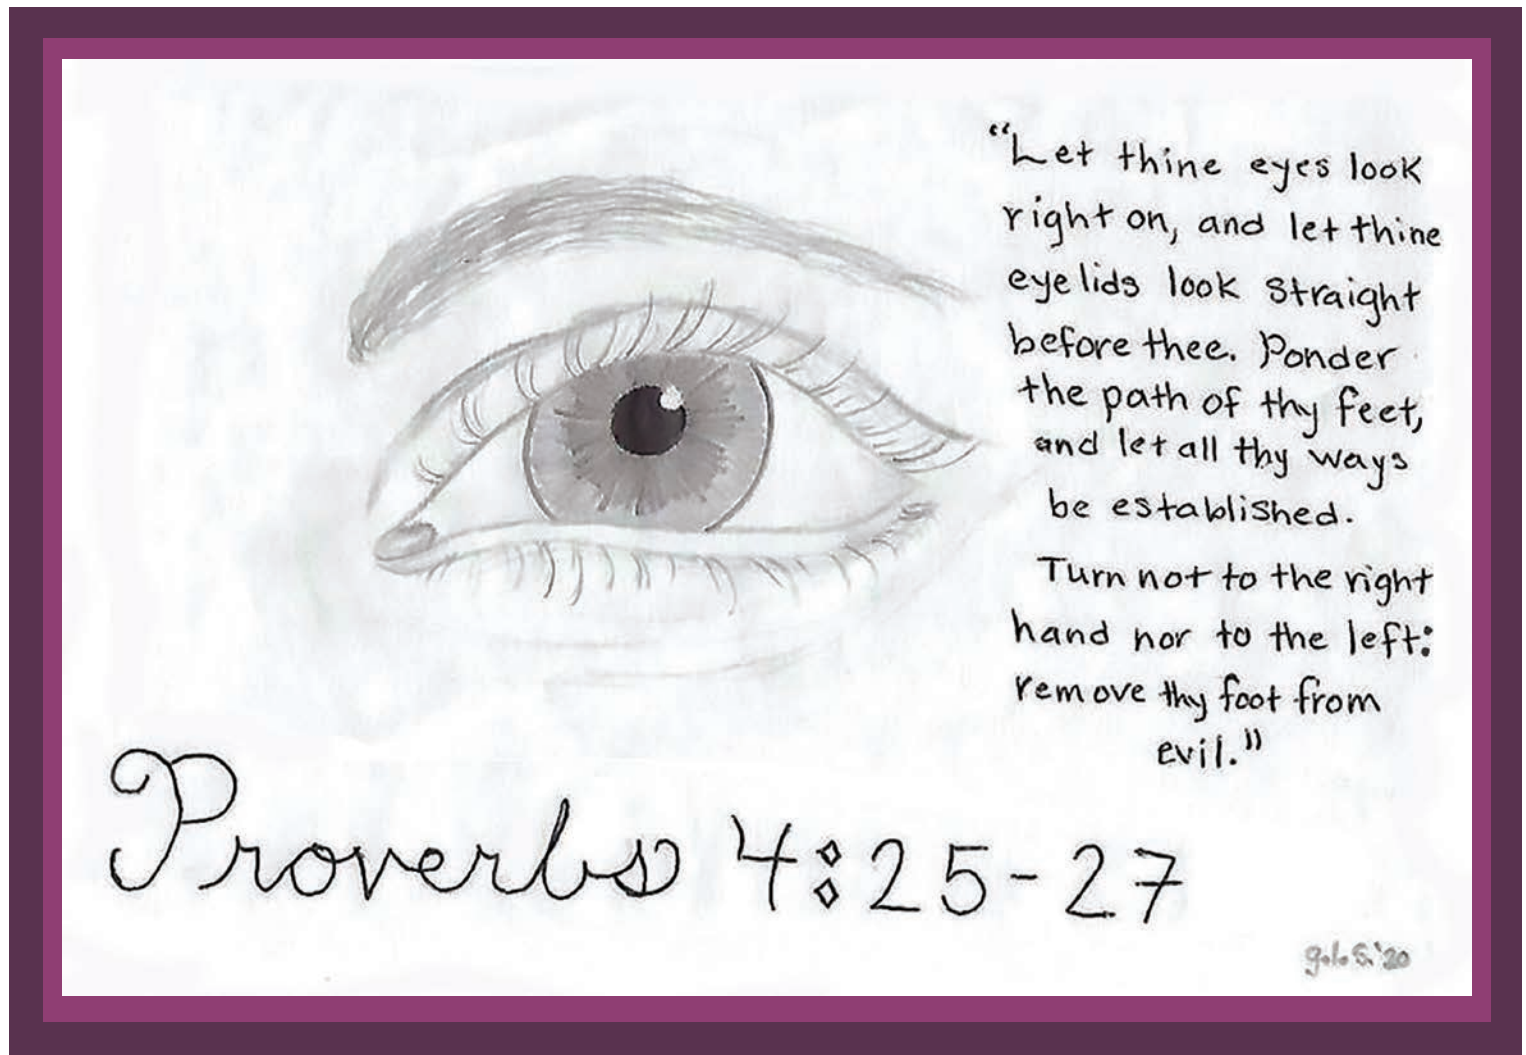 “Let thine eyes look
right on, and let thine
eyelids look straight
before thee. Ponder
the path of thy feet,
and let all thy ways
be established.
Turn not to the right
hand nor to the left:
remove thy foot from
evil.”
Proverbs 4:25-27
S.'20